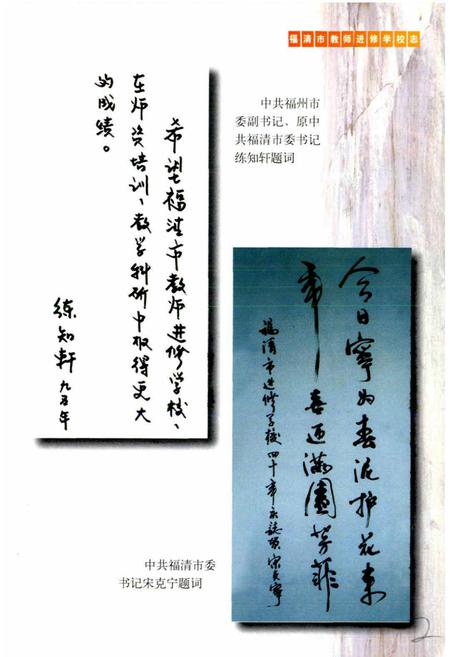 福清市教师进修学校志
中共福州市
委副书记、原中
共福清市委书记
练知轩题词
希望福清市教师进修学校、
在师资培训、教学科研中取得更大
的成绩。
练知轩 九五年
今日宁为春泥护花来
年喜迎满园芳菲
福清市进修学校四十年校志贺 宋克宁
中共福清市委
书记宋克宁题词
2